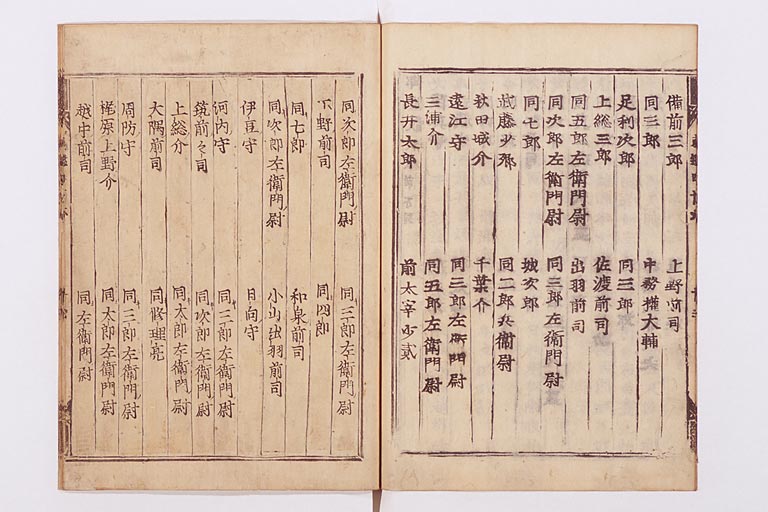 備前三郎 上野前司
同三郎 中務権大輔
足利次郎 同三郎
上総三郎 佐渡前司
同五郎左衛門尉 出羽前司
同次郎左衛門尉 同三郎左衛門尉
同七郎 城次郎
武藤少卿 同二郎兵衛尉
秋田城介 千葉介
遠江守 同三郎左衛門尉
三浦介 同五郎左衛門尉
長井太郎 前太宰少貳
同次郎左衛門尉 同三郎左衛門尉
下野前司 同四郎
同七郎 和泉前司
同次郎左衛門尉 小山出羽前司
伊豆守 日向守
河内守 同三郎左衛門尉
筑前々司 同次郎左衛門尉
上総介 同太郎左衛門尉
大隅前司 同修理亮
周防守 同三郎左衛門尉
梶原上野介 同太郎左衛門尉
越中前司 同左衛門尉